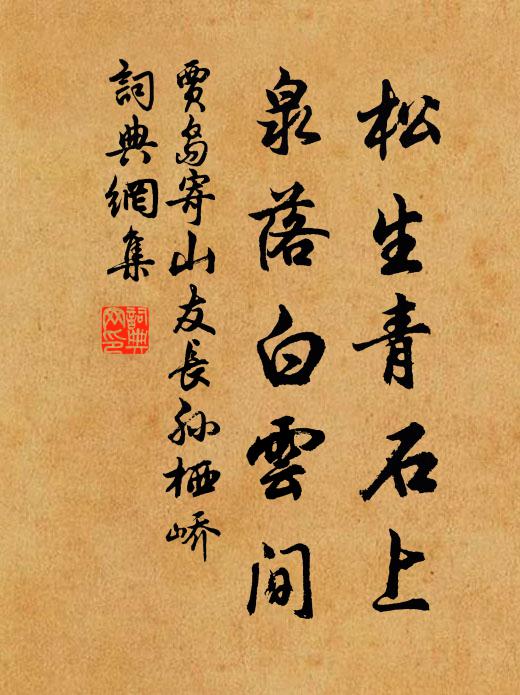 松生青石上
泉落白雲間
賈島寄山友長孫栖嶠
詞典網集
詞典網印